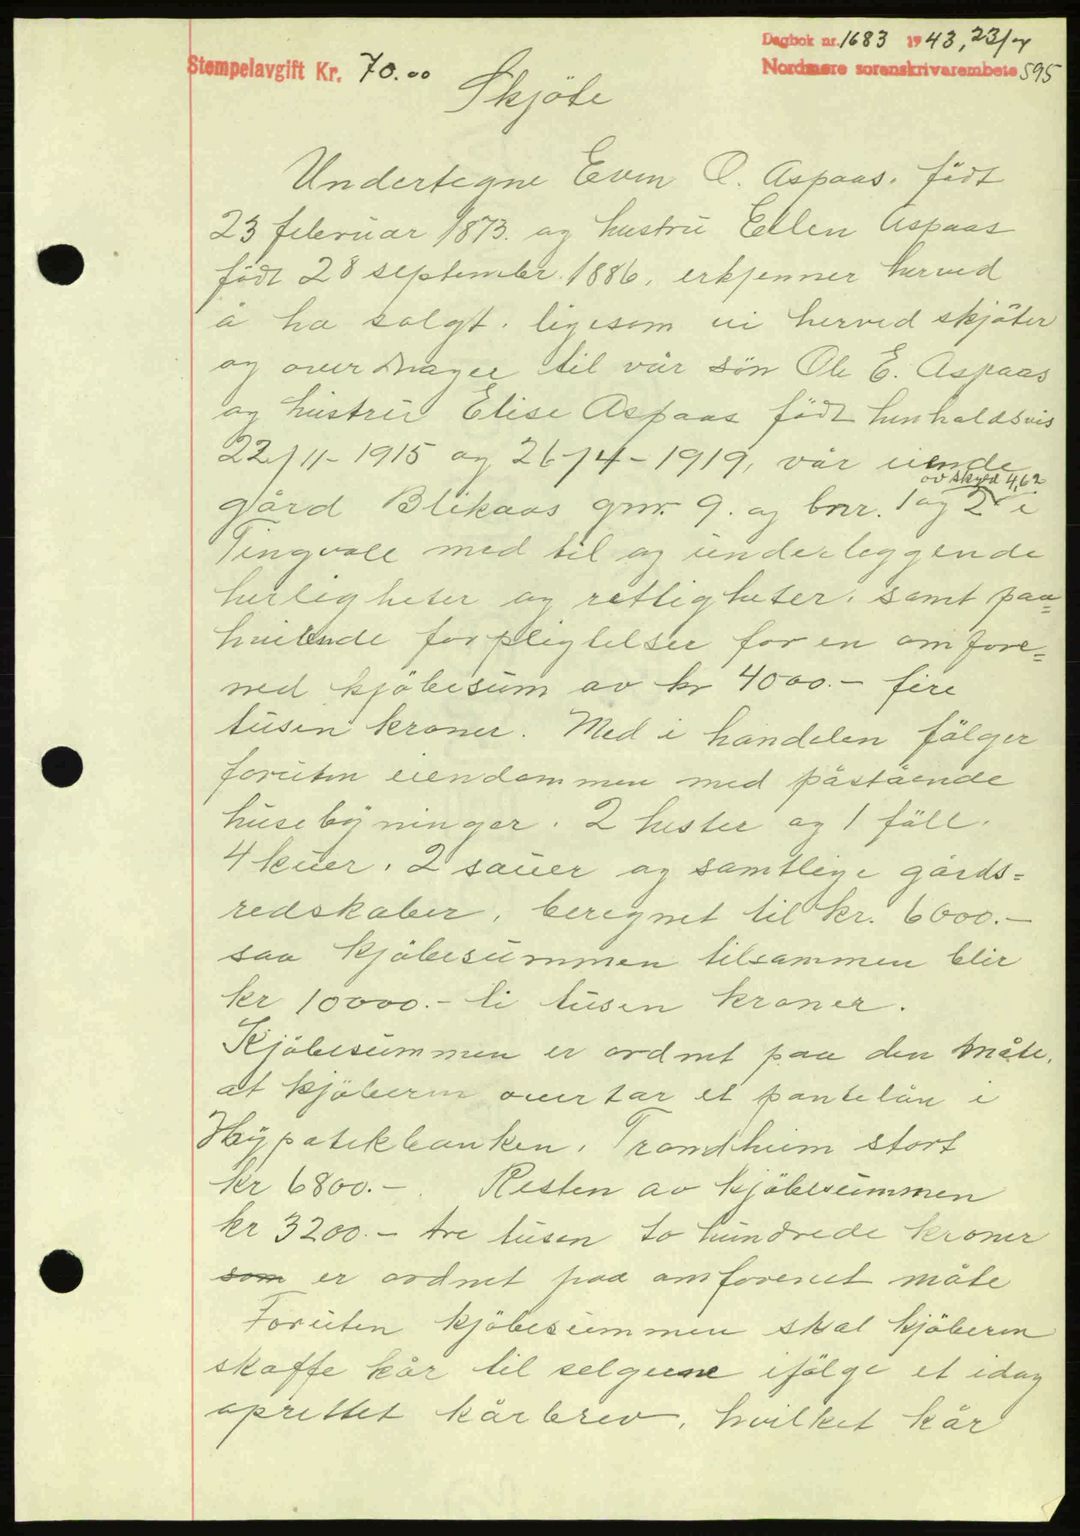 Dagbok nr. 1683 1943, 23/7
Stempelavgift Kr. 70.00
Nordmøre sorenskrivarembete 595
Skjöte
Undertegne Even O. Aspaas. födt
23 februar 1873. og hustru Ellen Aspaas
födt 28 september 1886, erkjenner herved
å ha solgt. ligesom vi herved skjöter
og overdrager til vår sön Ole E. Aspaas
og hustru Elise Aspaas födt henholdsvis
22/11-1915 og 26/4-1919, vår eiende
av skyld 4,62
gård Blikaas gnr. 9. og bnr. 1 og 2 i
Tingvoll med til og underleggende
herligheter og rettigheter. samt paa=
hvilende forpligtelser for en omfore=
ned kjöbesum av kr 4000.- fire
tusen kroner. Med i handelen fölger
foruten eiendommen med påstående
husebygninger. 2 hester og 1 föll.
4 kuer. 2 sauer og samtlige gårds=
redskaber, beregnet til kr. 6000.-
saa kjöbesummen tilsammen blir
kr 10000.- ti tusen kroner.
Kjöbesummen er ordnet paa den måte.
at kjöberen overtar et pantelån i
Hypotekbanken. Trondheim stort
kr 6800.-. Resten av kjöbesummen
kr 3200.- tre tusen to hundrede kroner
som er ordnet paa omforenet måte
Foruten kjöbesummen skal kjöberen
skaffe kår til selgerne ifölge et idag
oprettet kårbrev, hvilket kår